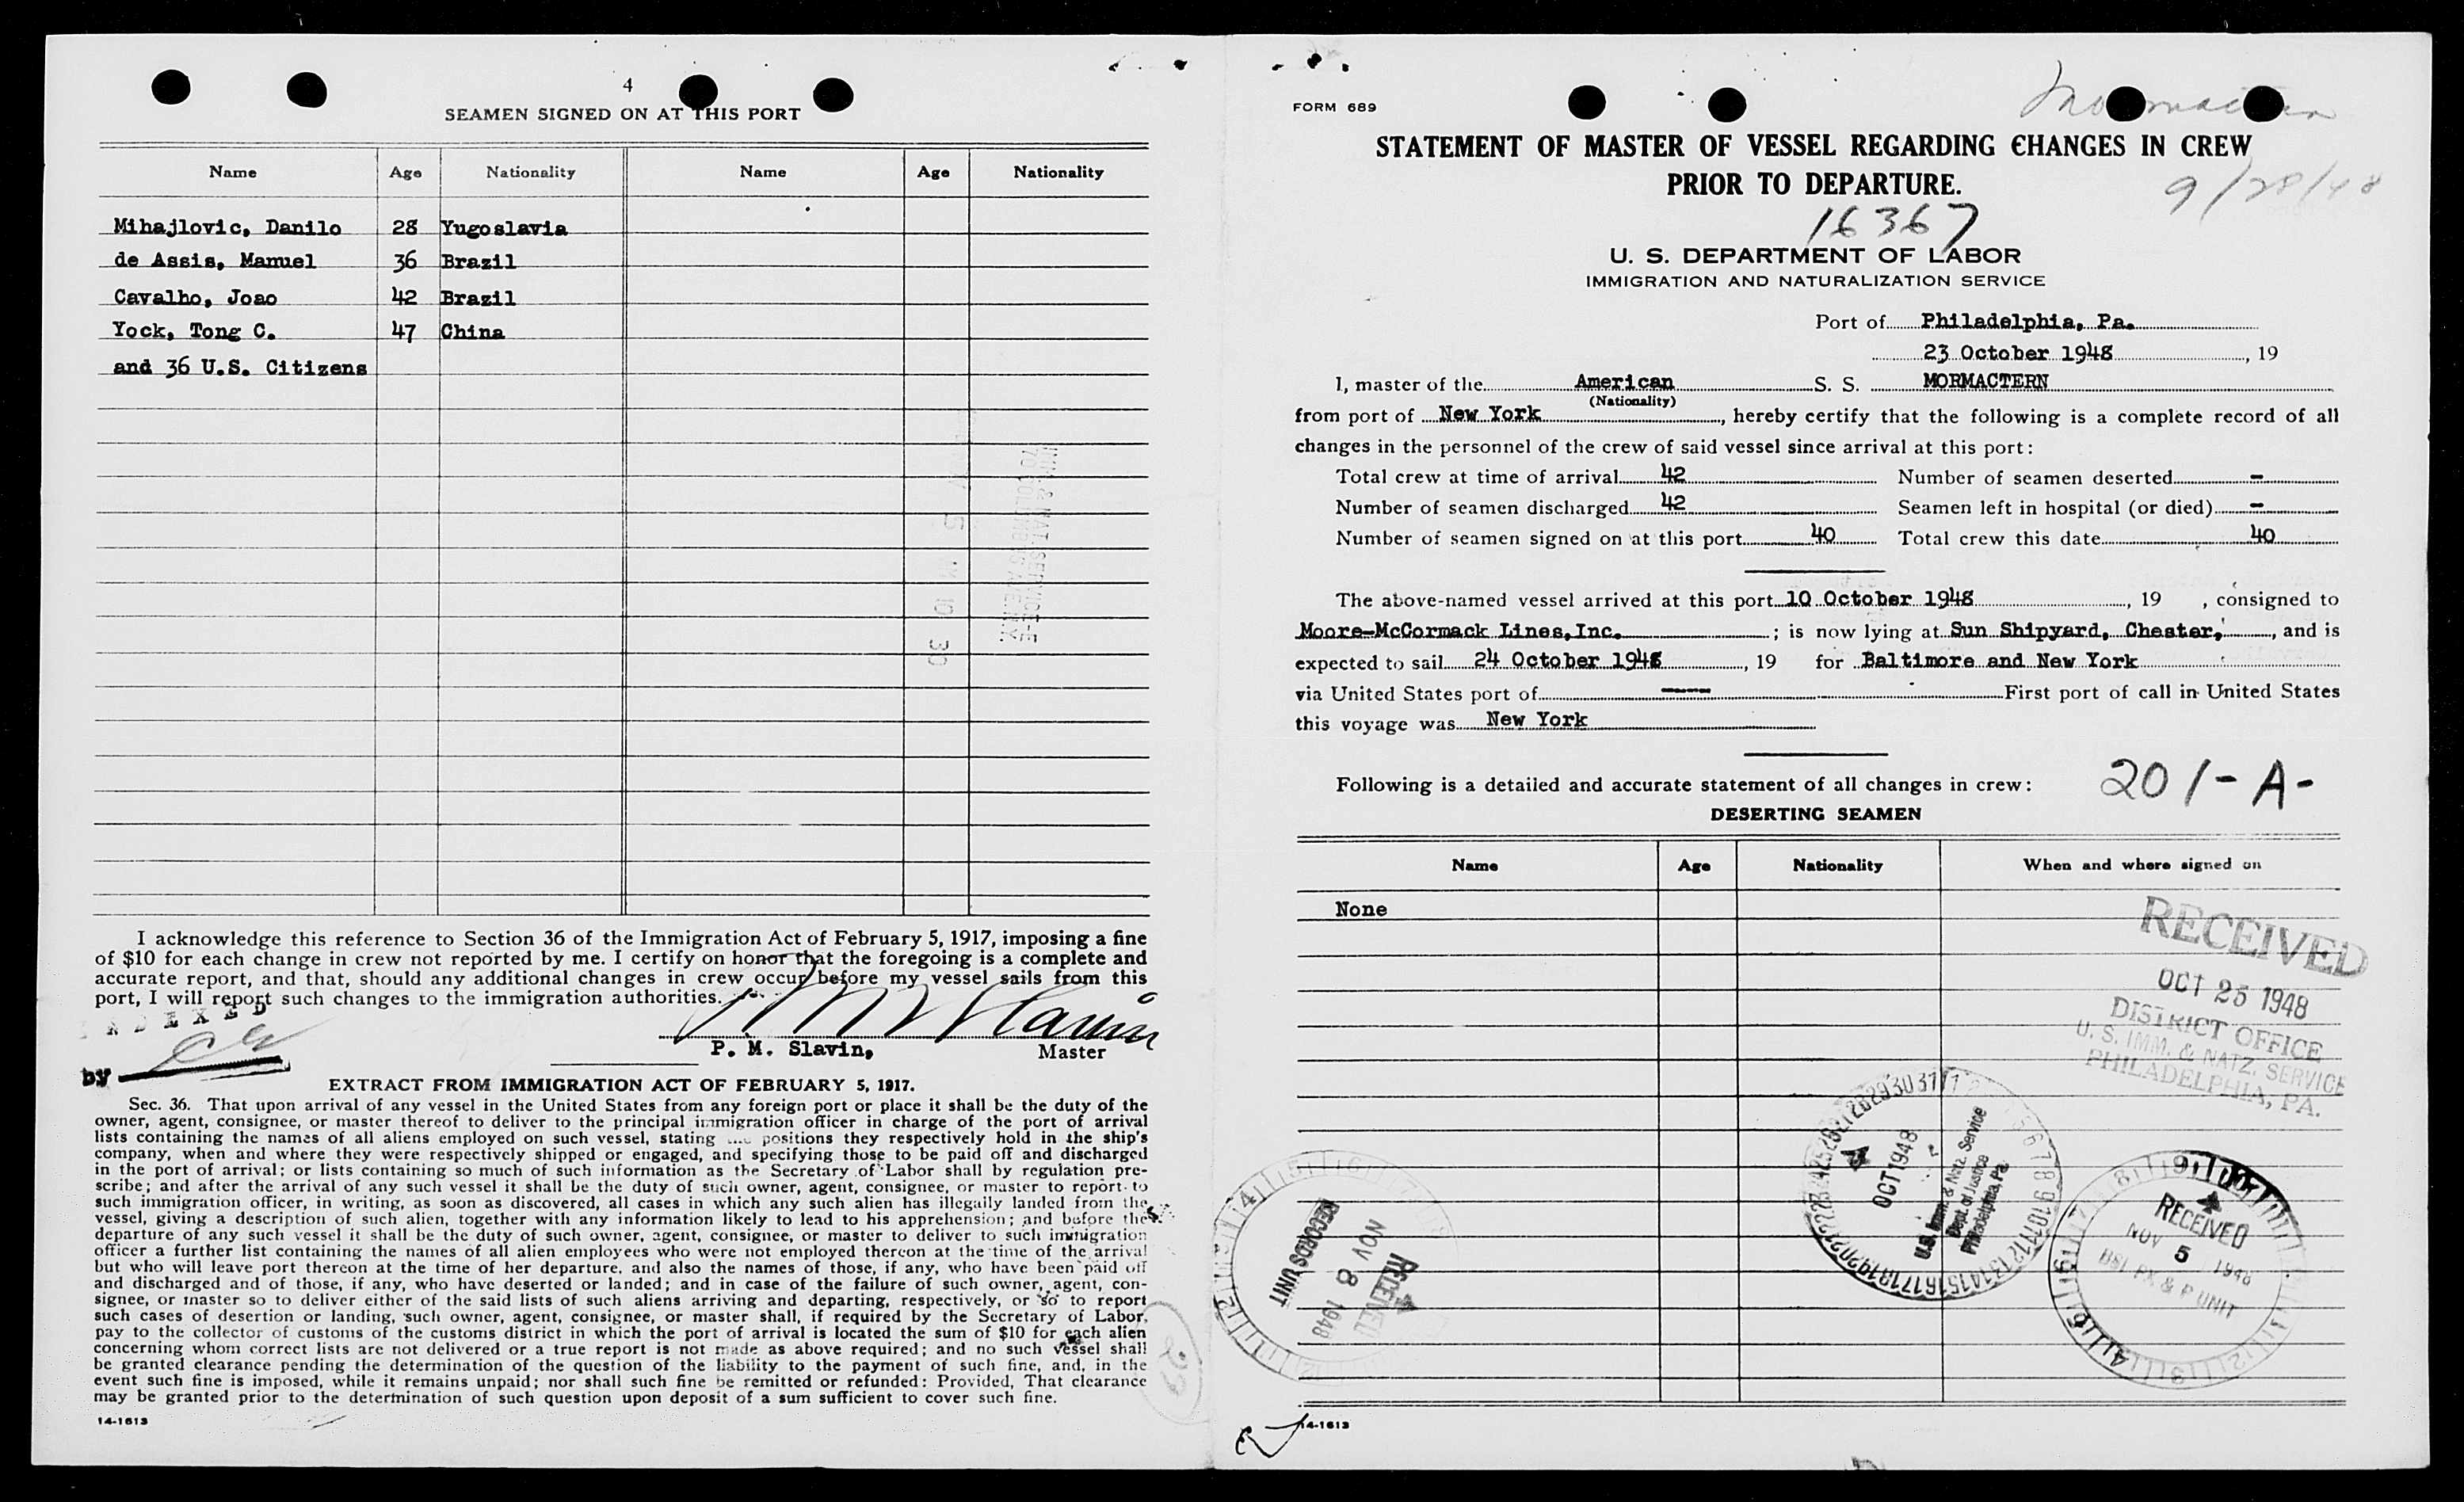 4
SEAMEN SIGNED ON AT THIS PORT
Name Age Nationality Name Age Nationality
Mihajlovic, Danilo 28 Yugoslavia
de Assis, Manuel 36 Brazil
Cavalho, Joao 42 Brazil
Yock, Tong C. 47 China
and 36 U.S. Citizens
I acknowledge this reference to Section 36 of the Immigration Act of February 5, 1917, imposing a fine
of $10 for each change in crew not reported by me. I certify on honor that the foregoing is a complete and
accurate report, and that, should any additional changes in crew occur before my vessel sails from this
port, I will report such changes to the immigration authorities.
INDEXED
by
P. M. Slavin, Master
EXTRACT FROM IMMIGRATION ACT OF FEBRUARY 5, 1917.
Sec. 36. That upon arrival of any vessel in the United States from any foreign port or place it shall be the duty of the
owner, agent, consignee, or master thereof to deliver to the principal immigration officer in charge of the port of arrival
lists containing the names of all aliens employed on such vessel, stating the positions they respectively hold in the ship's
company, when and where they were respectively shipped or engaged, and specifying those to be paid off and discharged
in the port of arrival; or lists containing so much of such information as the Secretary of Labor shall by regulation pre-
scribe; and after the arrival of any such vessel it shall be the duty of such owner, agent, consignee, or master to report to
such immigration officer, in writing, as soon as discovered, all cases in which any such alien has illegally landed from the
vessel, giving a description of such alien, together with any information likely to lead to his apprehension; and before the
departure of any such vessel it shall be the duty of such owner, agent, consignee, or master to deliver to such immigration
officer a further list containing the names of all alien employees who were not employed thereon at the time of the arrival
but who will leave port thereon at the time of her departure, and also the names of those, if any, who have been paid off
and discharged and of those, if any, who have deserted or landed; and in case of the failure of such owner, agent, con-
signee, or master so to deliver either of the said lists of such aliens arriving and departing, respectively, or so to report
such cases of desertion or landing, such owner, agent, consignee, or master shall, if required by the Secretary of Labor,
pay to the collector of customs of the customs district in which the port of arrival is located the sum of $10 for each alien
concerning whom correct lists are not delivered or a true report is not made as above required; and no such vessel shall
be granted clearance pending the determination of the question of the liability to the payment of such fine, and, in the
event such fine is imposed, while it remains unpaid; nor shall such fine be remitted or refunded: Provided, That clearance
may be granted prior to the determination of such question upon deposit of a sum sufficient to cover such fine.
14-1613
FORM 689
Mormactern
STATEMENT OF MASTER OF VESSEL REGARDING CHANGES IN CREW
PRIOR TO DEPARTURE.
9/28/48
16367
U. S. DEPARTMENT OF LABOR
IMMIGRATION AND NATURALIZATION SERVICE
Port of Philadelphia, Pa.
23 October 1948, 19
I, master of the American S. S. MORMACTERN
(Nationality)
from port of New York, hereby certify that the following is a complete record of all
changes in the personnel of the crew of said vessel since arrival at this port:
Total crew at time of arrival 42 Number of seamen deserted -
Number of seamen discharged 42 Seamen left in hospital (or died) -
Number of seamen signed on at this port 40 Total crew this date 40
The above-named vessel arrived at this port 10 October 1948, 19 , consigned to
Moore-McCormack Lines, Inc. ; is now lying at Sun Shipyard, Chester, , and is
expected to sail 24 October 1948, 19 for Baltimore and New York
via United States port of ---- First port of call in United States
this voyage was New York
Following is a detailed and accurate statement of all changes in crew: 201-A-
DESERTING SEAMEN
Name Age Nationality When and where signed on
None
RECEIVED
OCT 25 1948
DISTRICT OFFICE
U. S. IMM. & NATZ. SERVICE
PHILADELPHIA, PA.
OCT 1948
U.S. Imm. & Natz. Service
Dept. of Justice
Philadelphia, Pa.
RECEIVED
NOV 5 1948
RECEIVED
NOV 8 1948
RECORDS UNIT
14-1613